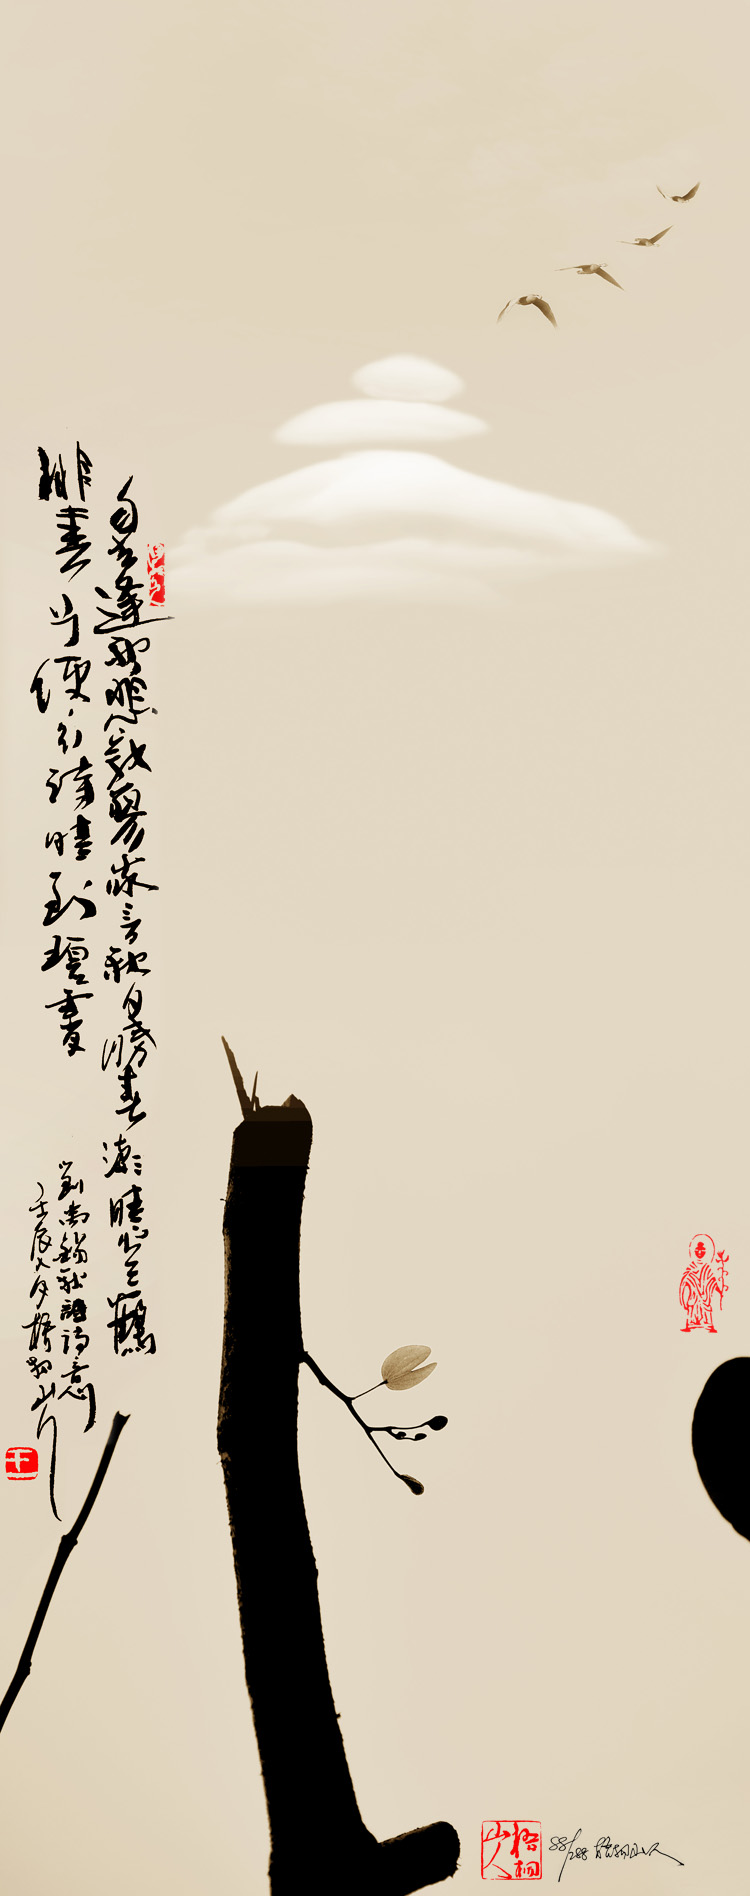 自古逢秋悲寂寥我言秋日勝春潮晴空一鶴
排雲上便引詩情到碧霄
劉禹錫秋詞詩意
壬辰八月梧桐山人
梧桐山人
88/288 梧桐山人